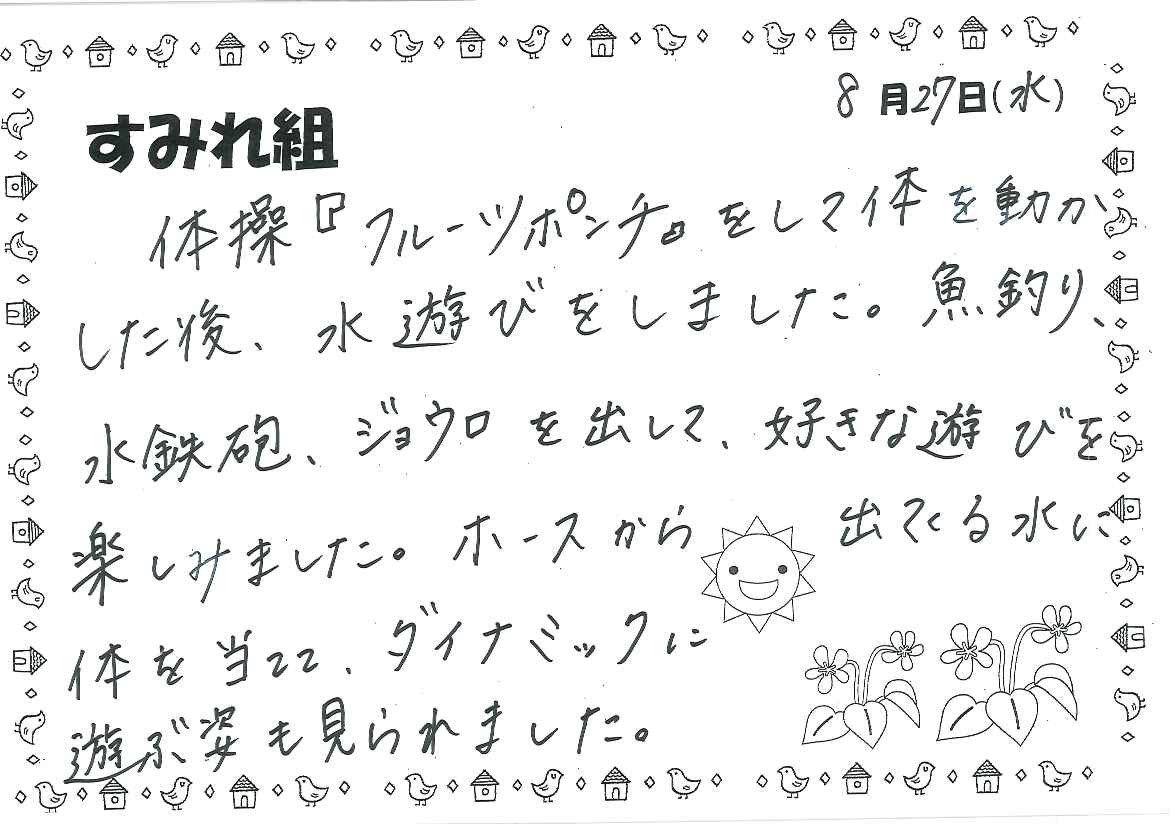 8月27日(水)
すみれ組
体操『フルーツポンチ』をして体を動か
した後、水遊びをしました。魚釣り、
水鉄砲、ジョウロを出して、好きな遊びを
楽しみました。ホースから出てくる水に
体を当てて、ダイナミックに
遊ぶ姿も見られました。